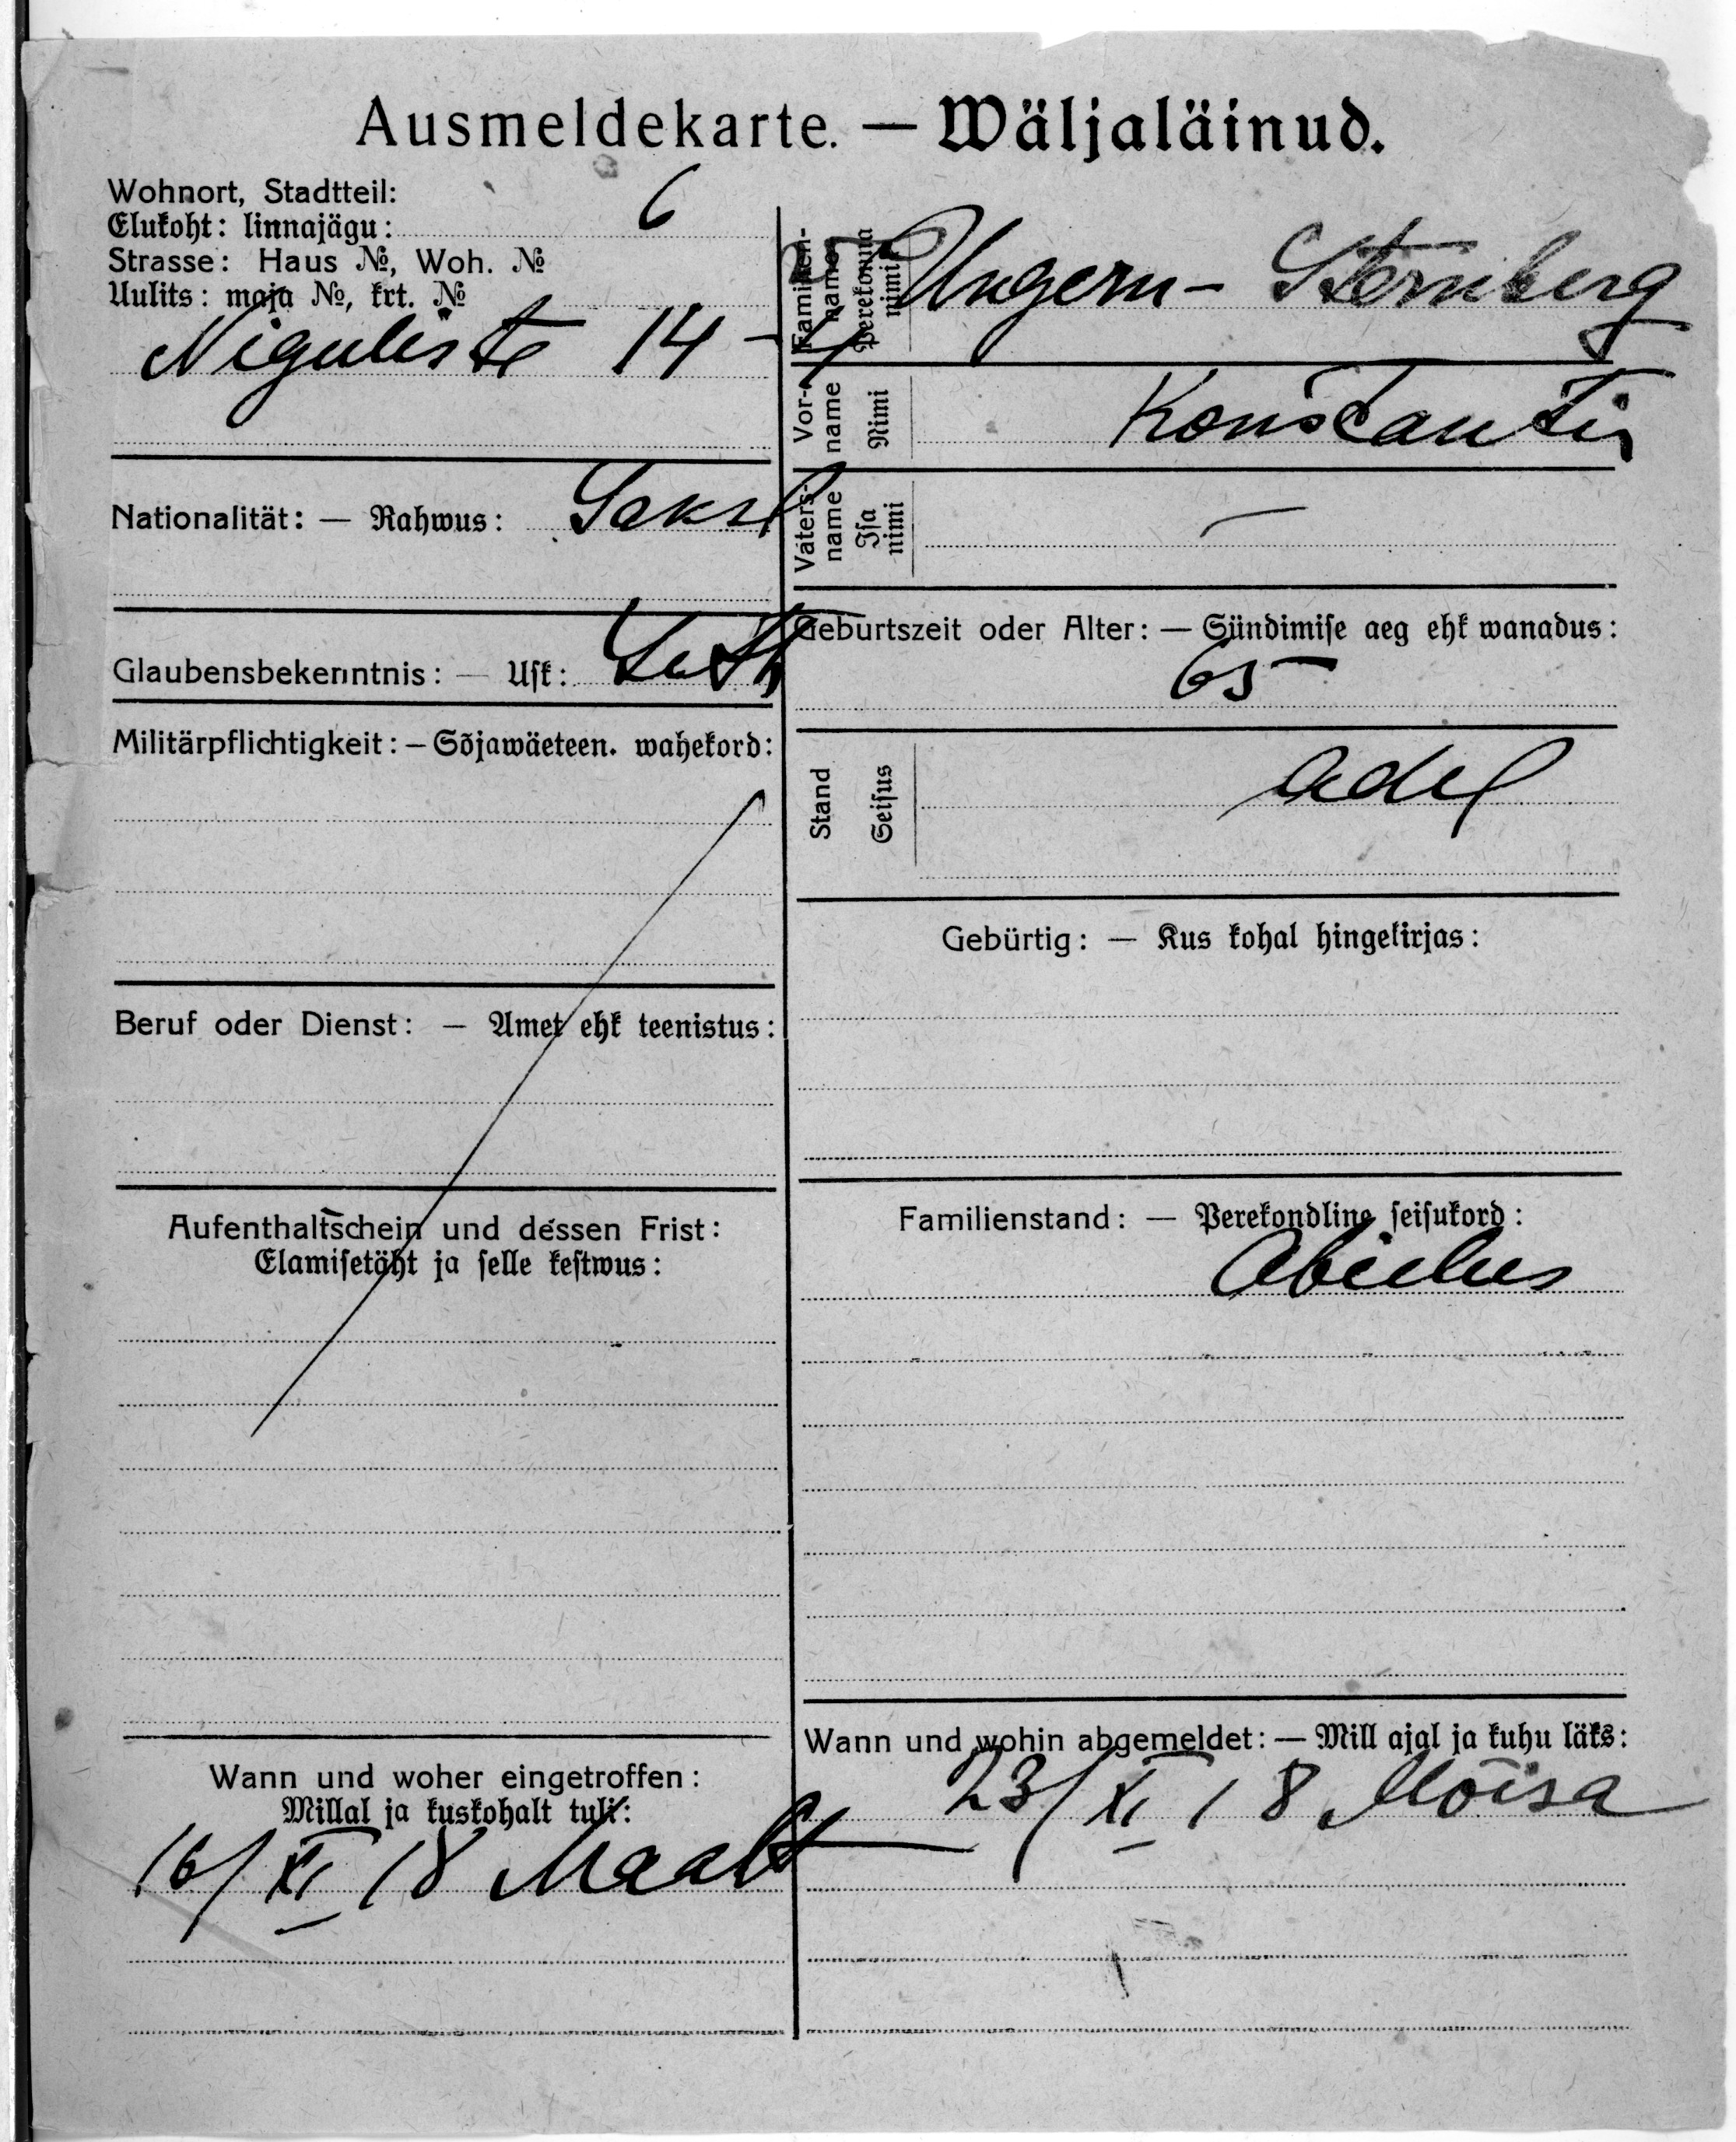 Ausmeldekarte. — Wäljaläinud.
Wohnort, Stadtteil:
Elukoht: linnajägu: 6
Strasse: Haus №, Woh. №
Uulits: maja №, krt. №
Niguliste 14 - 4
Nationalität: — Rahwus: Saksl
Glaubensbekenntnis: — Usk: Luth
Militärpflichtigkeit: — Sõjawäeteen. wahekord:
Beruf oder Dienst: — Amet ehk teenistus:
Aufenthaltschein und dessen Frist:
Elamisetäht ja selle kestwus:
Wann und woher eingetroffen:
Millal ja kuskohalt tuli:
16/XI 18 Maalt
Familien-
name
Perekonna
nimi
Ungern-Sternberg
Vor-
name
Nimi
Konstantin
Vaters-
name
Isa
nimi
—
Geburtszeit oder Alter: — Sündimise aeg ehk wanadus:
65
Stand
Seisus
Adel
Gebürtig: — Kus kohal hingekirjas:
Familienstand: — Perekondline seisukord:
Abielus
Wann und wohin abgemeldet: — Mill ajal ja kuhu läks:
23/XI 18 Mõisa